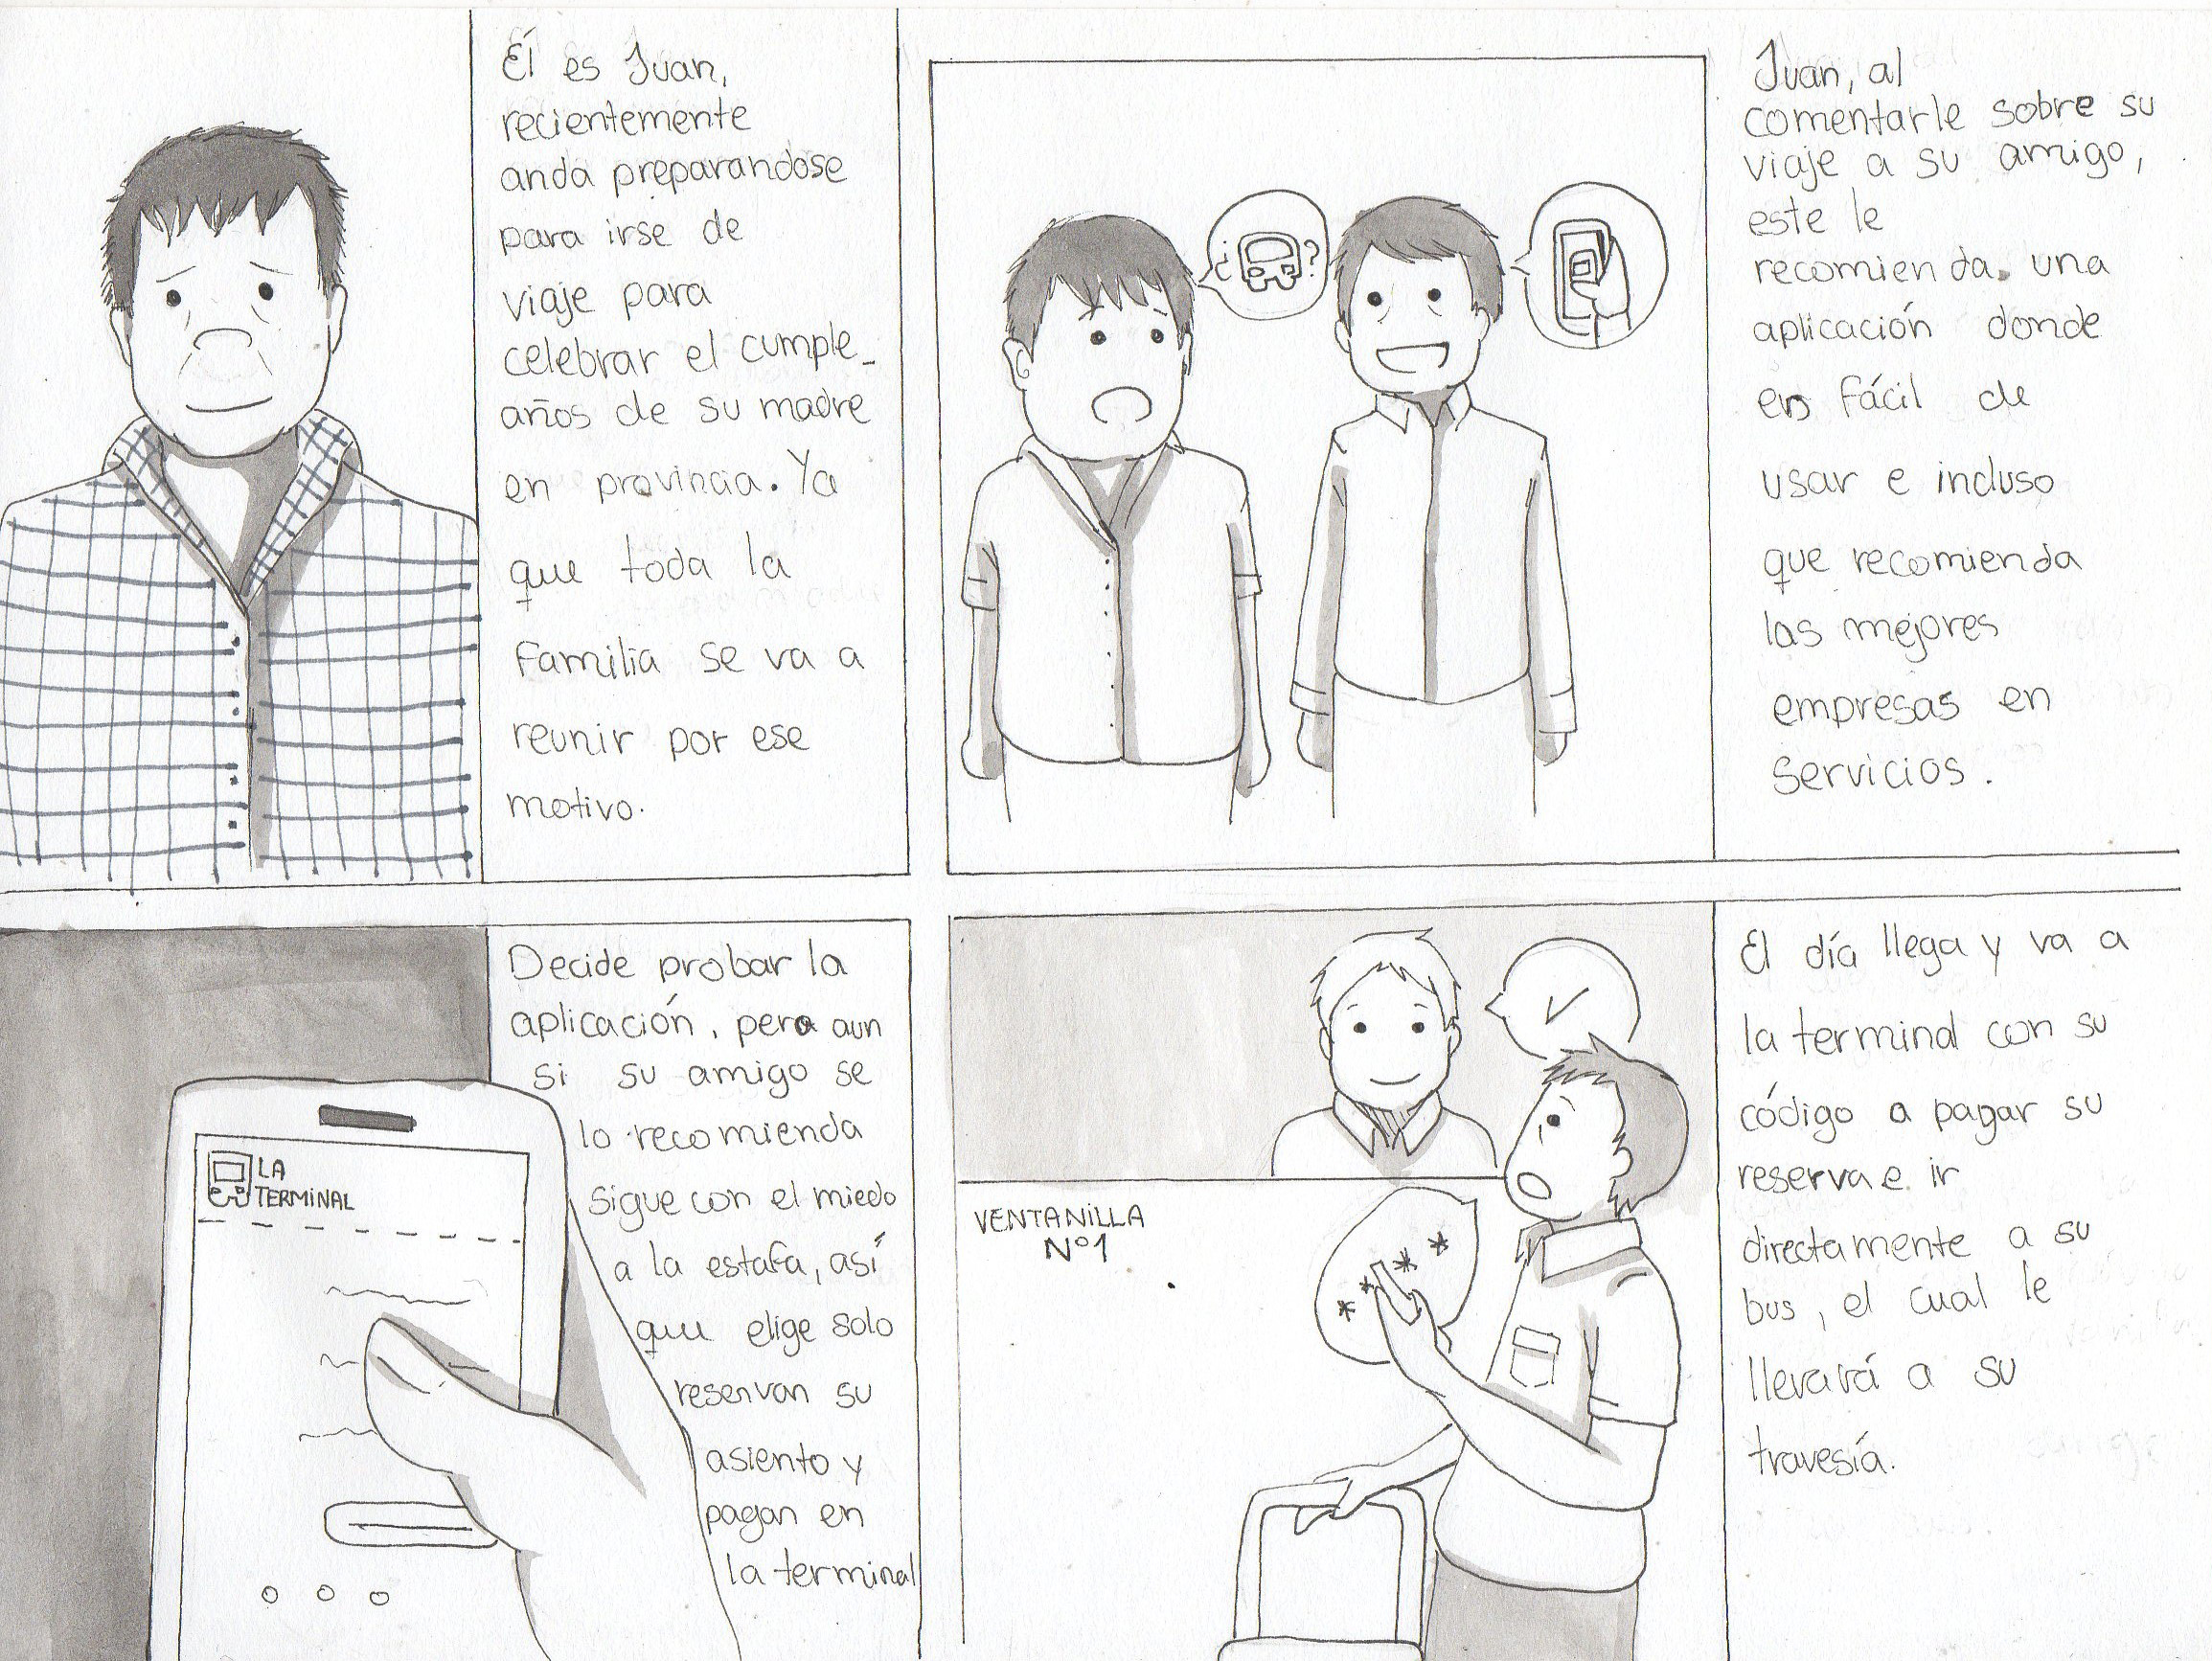 Él es Juan,
recientemente
anda preparandose
para irse de
viaje para
celebrar el cumple_
años de su madre
en provincia. Ya
que toda la
familia se va a
reunir por ese
motivo.
¿ ?
Juan, al
comentarle sobre su
viaje a su amigo,
este le
recomienda una
aplicación donde
es fácil de
usar e incluso
que recomienda
las mejores
empresas en
servicios.
LA
TERMINAL
Decide probar la
aplicación, pero aun
si su amigo se
lo recomienda
sigue con el miedo
a la estafa, así
que elige solo
reservan su
asiento y
pagan en
la terminal
VENTANILLA
Nº1
* * * *
El día llega y va a
la terminal con su
código a pagar su
reserva e ir
directamente a su
bus, el cual le
llevará a su
travesía.